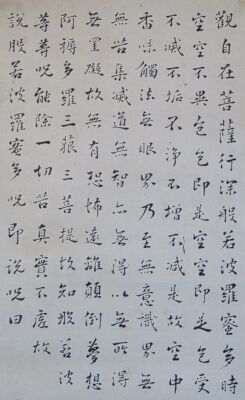 觀自在菩薩行深般若波羅蜜多時
空空不異色色即是空空即是色受
不滅不垢不淨不增不減是故空中
香味觸法無眼界乃至無意識界無
無苦集滅道無智亦無得以無所得
無罣礙故無有恐怖遠離顛倒夢想
阿耨多羅三藐三菩提故知般若波
等等呪能除一切苦真實不虛故
說般若波羅蜜多呪即說呪曰